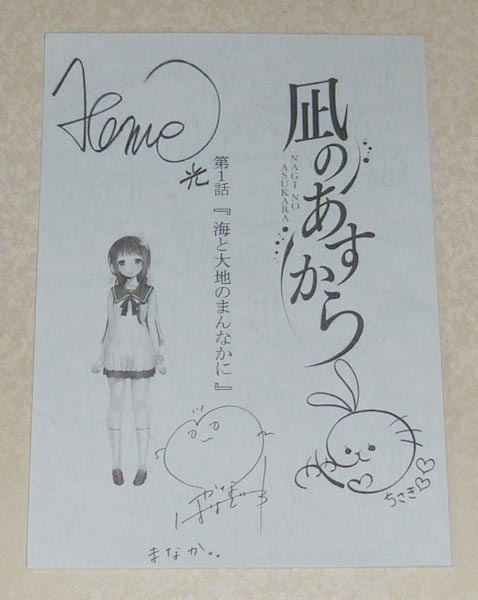 凪のあすから
NAGI NO
ASUKARA
第1話『海と大地のまんなかに』
光
ちさき
まなか